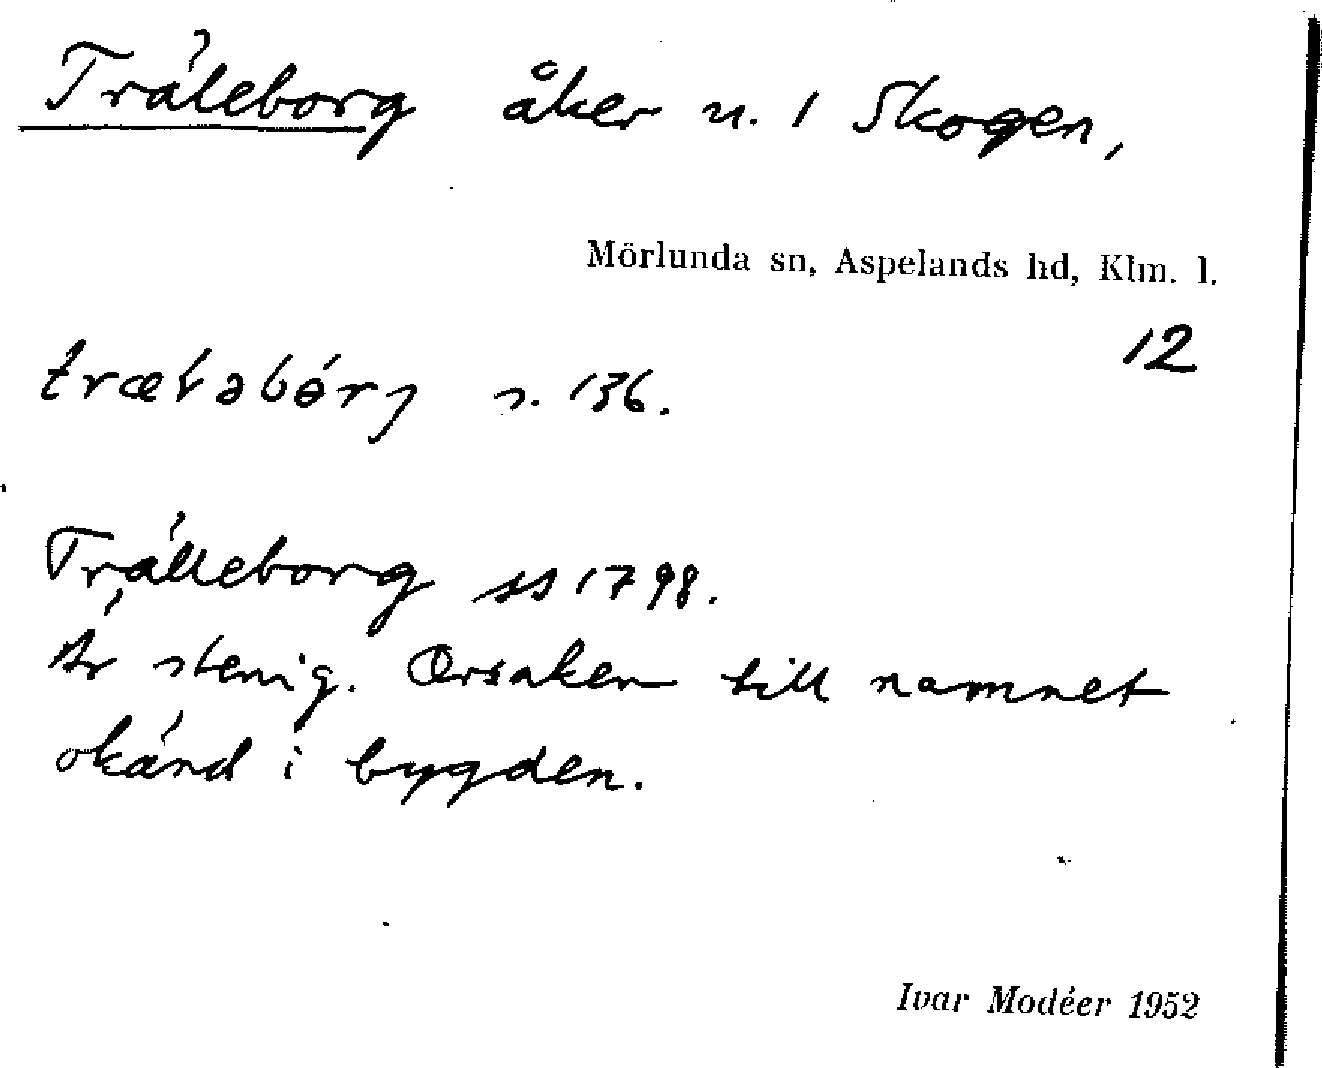 Träleborg åker n. 1 Skogen,
Mörlunda sn, Aspelands hd, Klm. l.
12
trœləbórj n. 136.
Trälleborg ss 1798.
Är stenig. Orsaken till namnet
okänd i bygden.
Ivar Modéer 1952